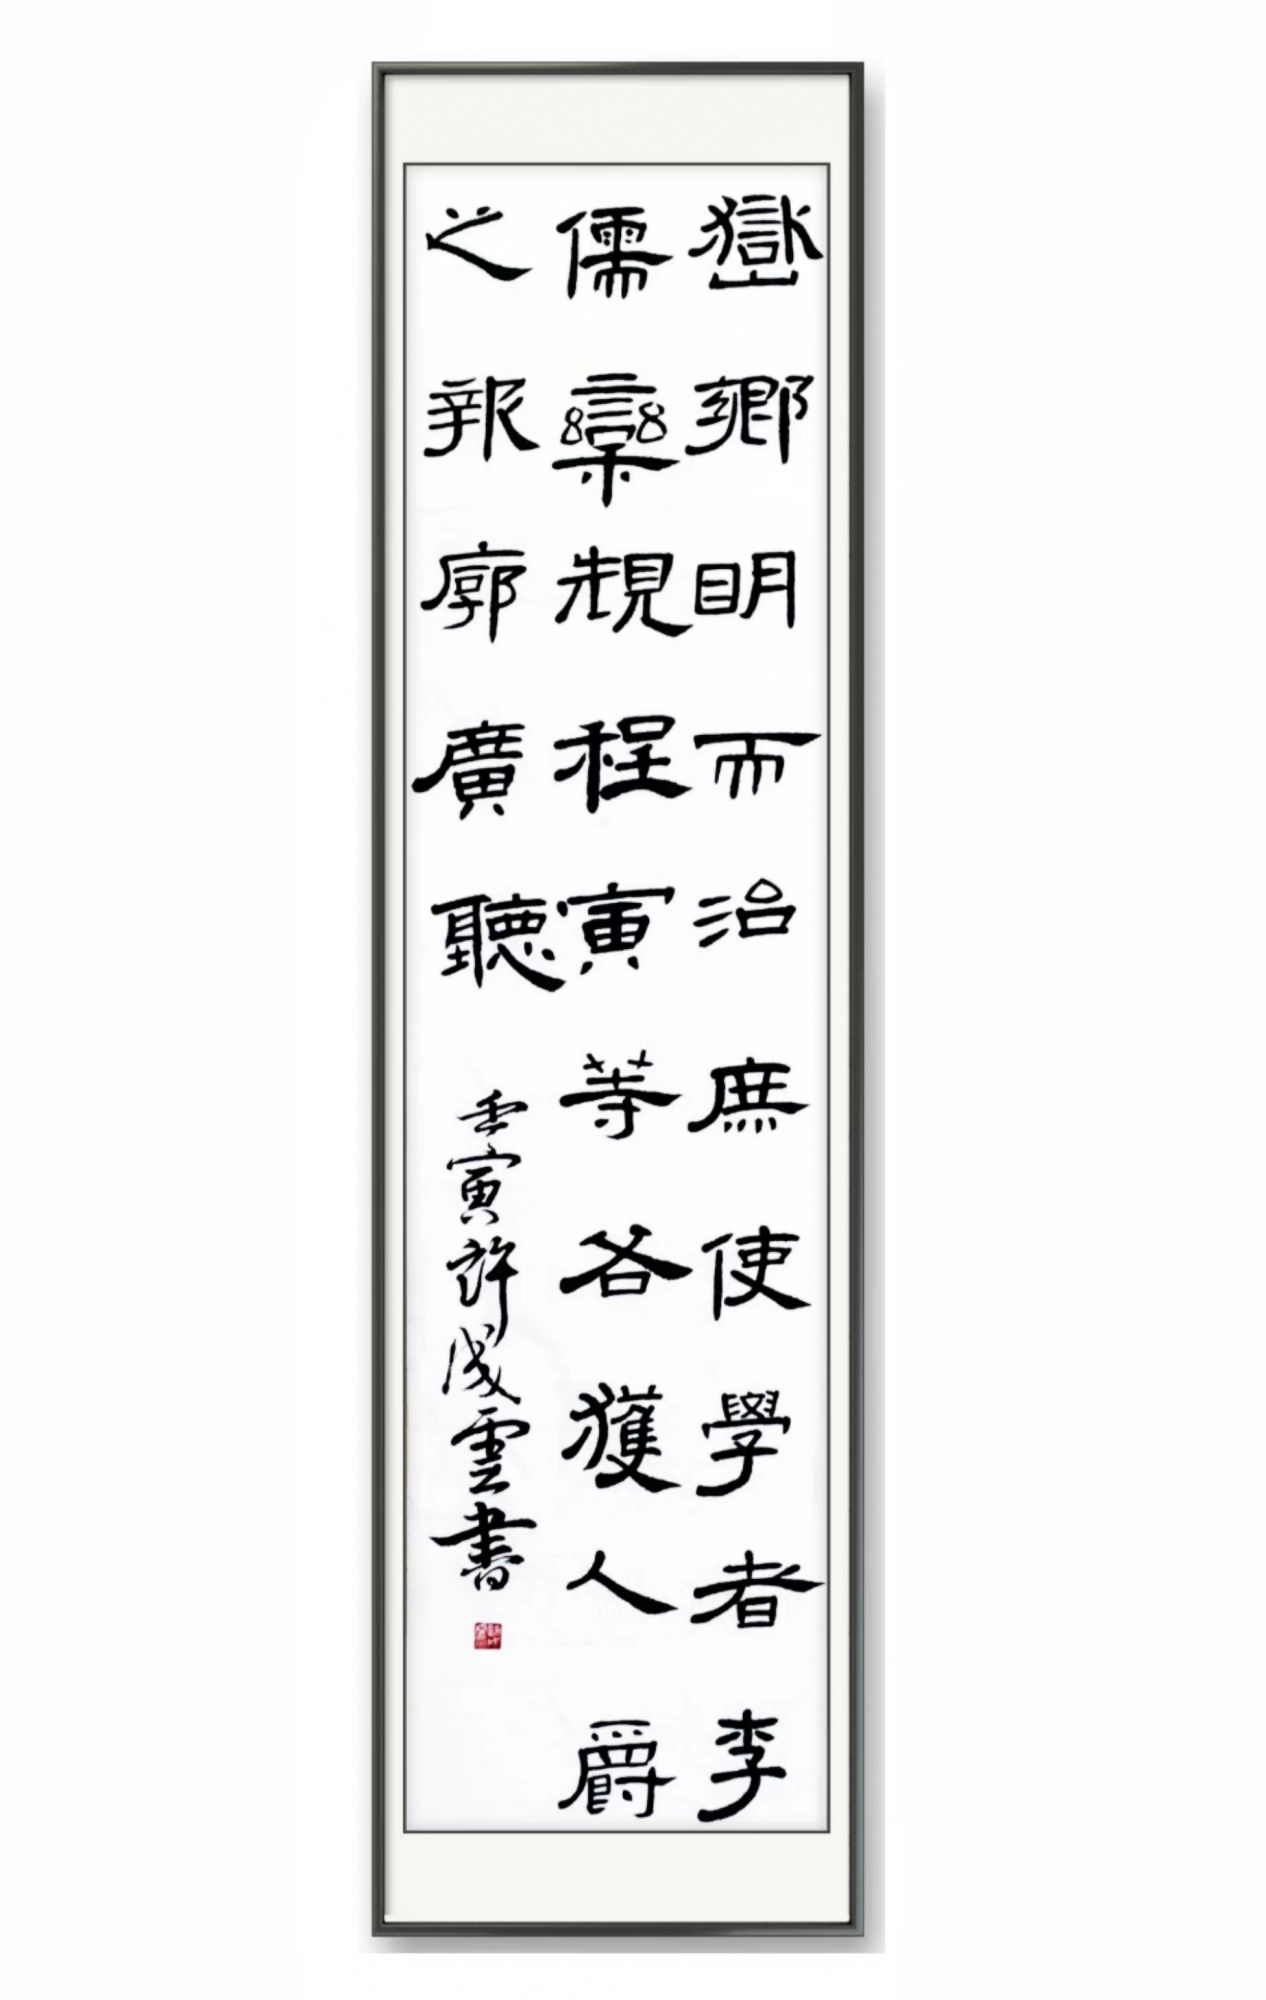 嶽鄉明而治庶使學者李
儒欒規程寅等各獲人爵
之報廓廣聽
壬寅許成雲書